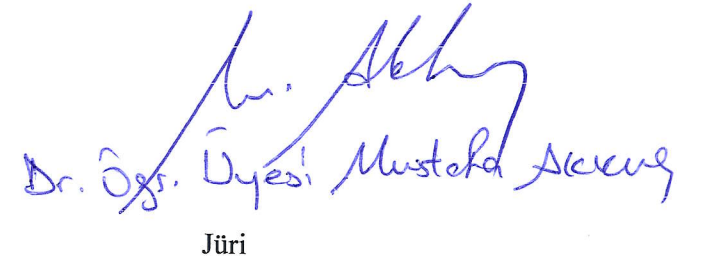 M. Akkuş
Dr. Öğr. Üyesi Mustafa Akkuş
Jüri